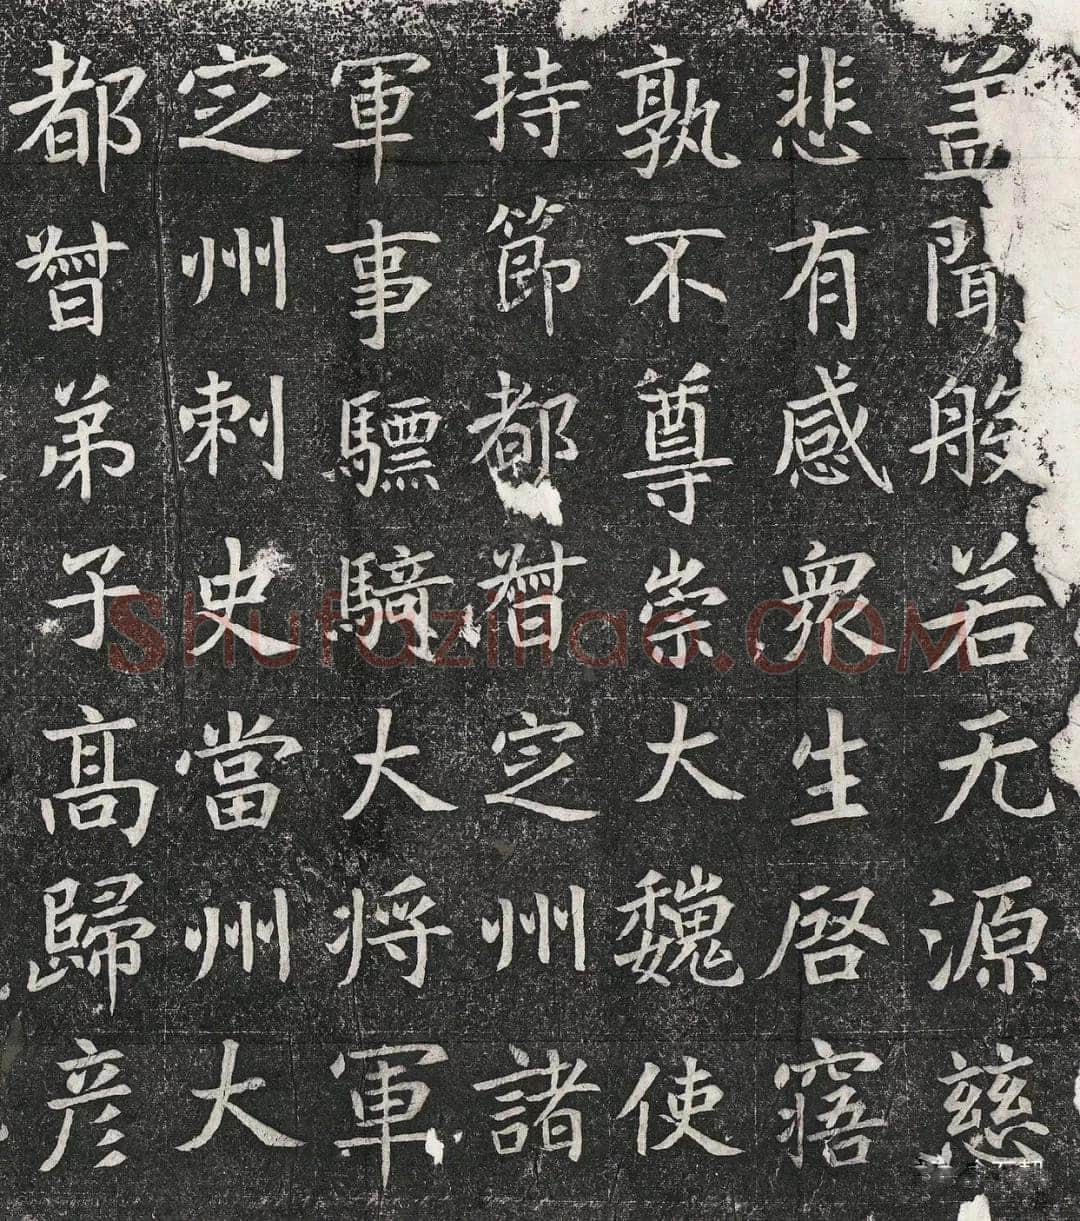 盖聞般若无源慈
悲有感衆生启寤
孰不尊崇大魏使
持節都督定州諸
軍事驃騎大将軍
定州刺史當州大
都督弟子髙歸彦
Shufaziliao.COM